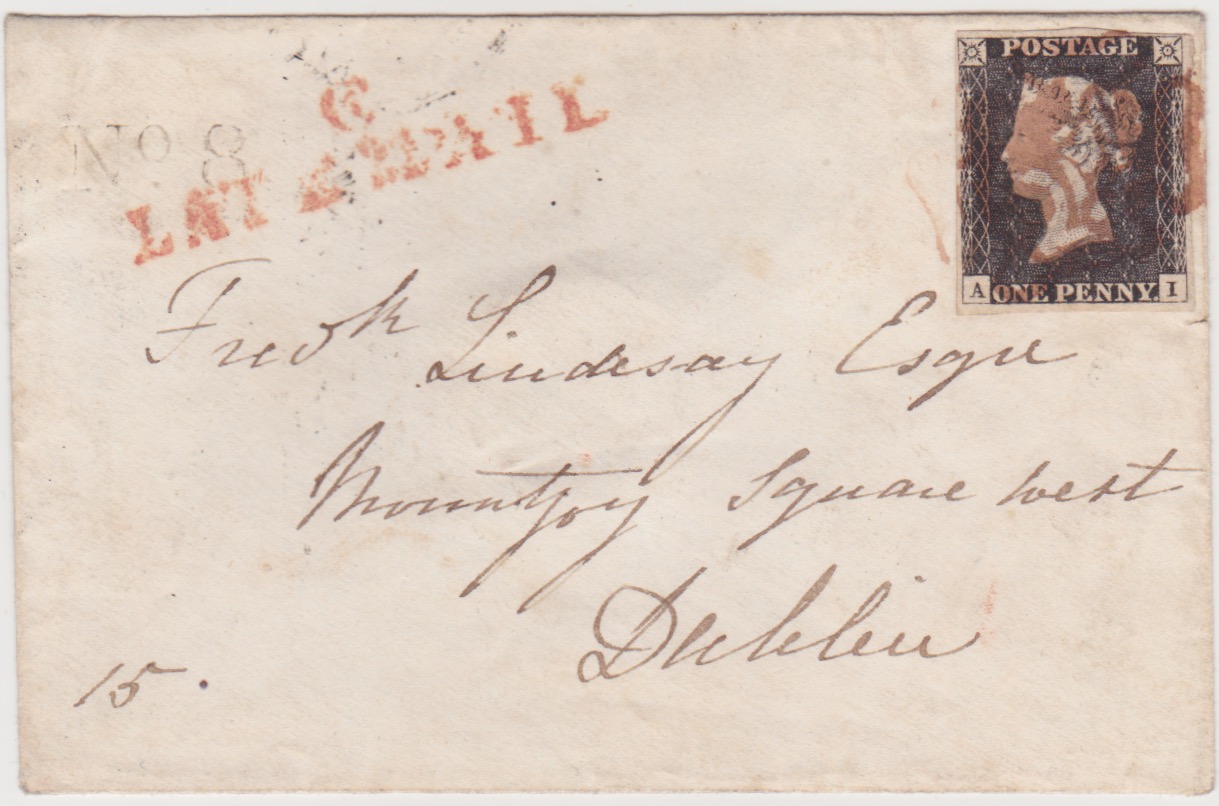 POSTAGE
A ONE PENNY. I
6
No 8
LATE MAIL
Fredk Lindesay Esqre
Mountjoy Square west
Dublin
15.